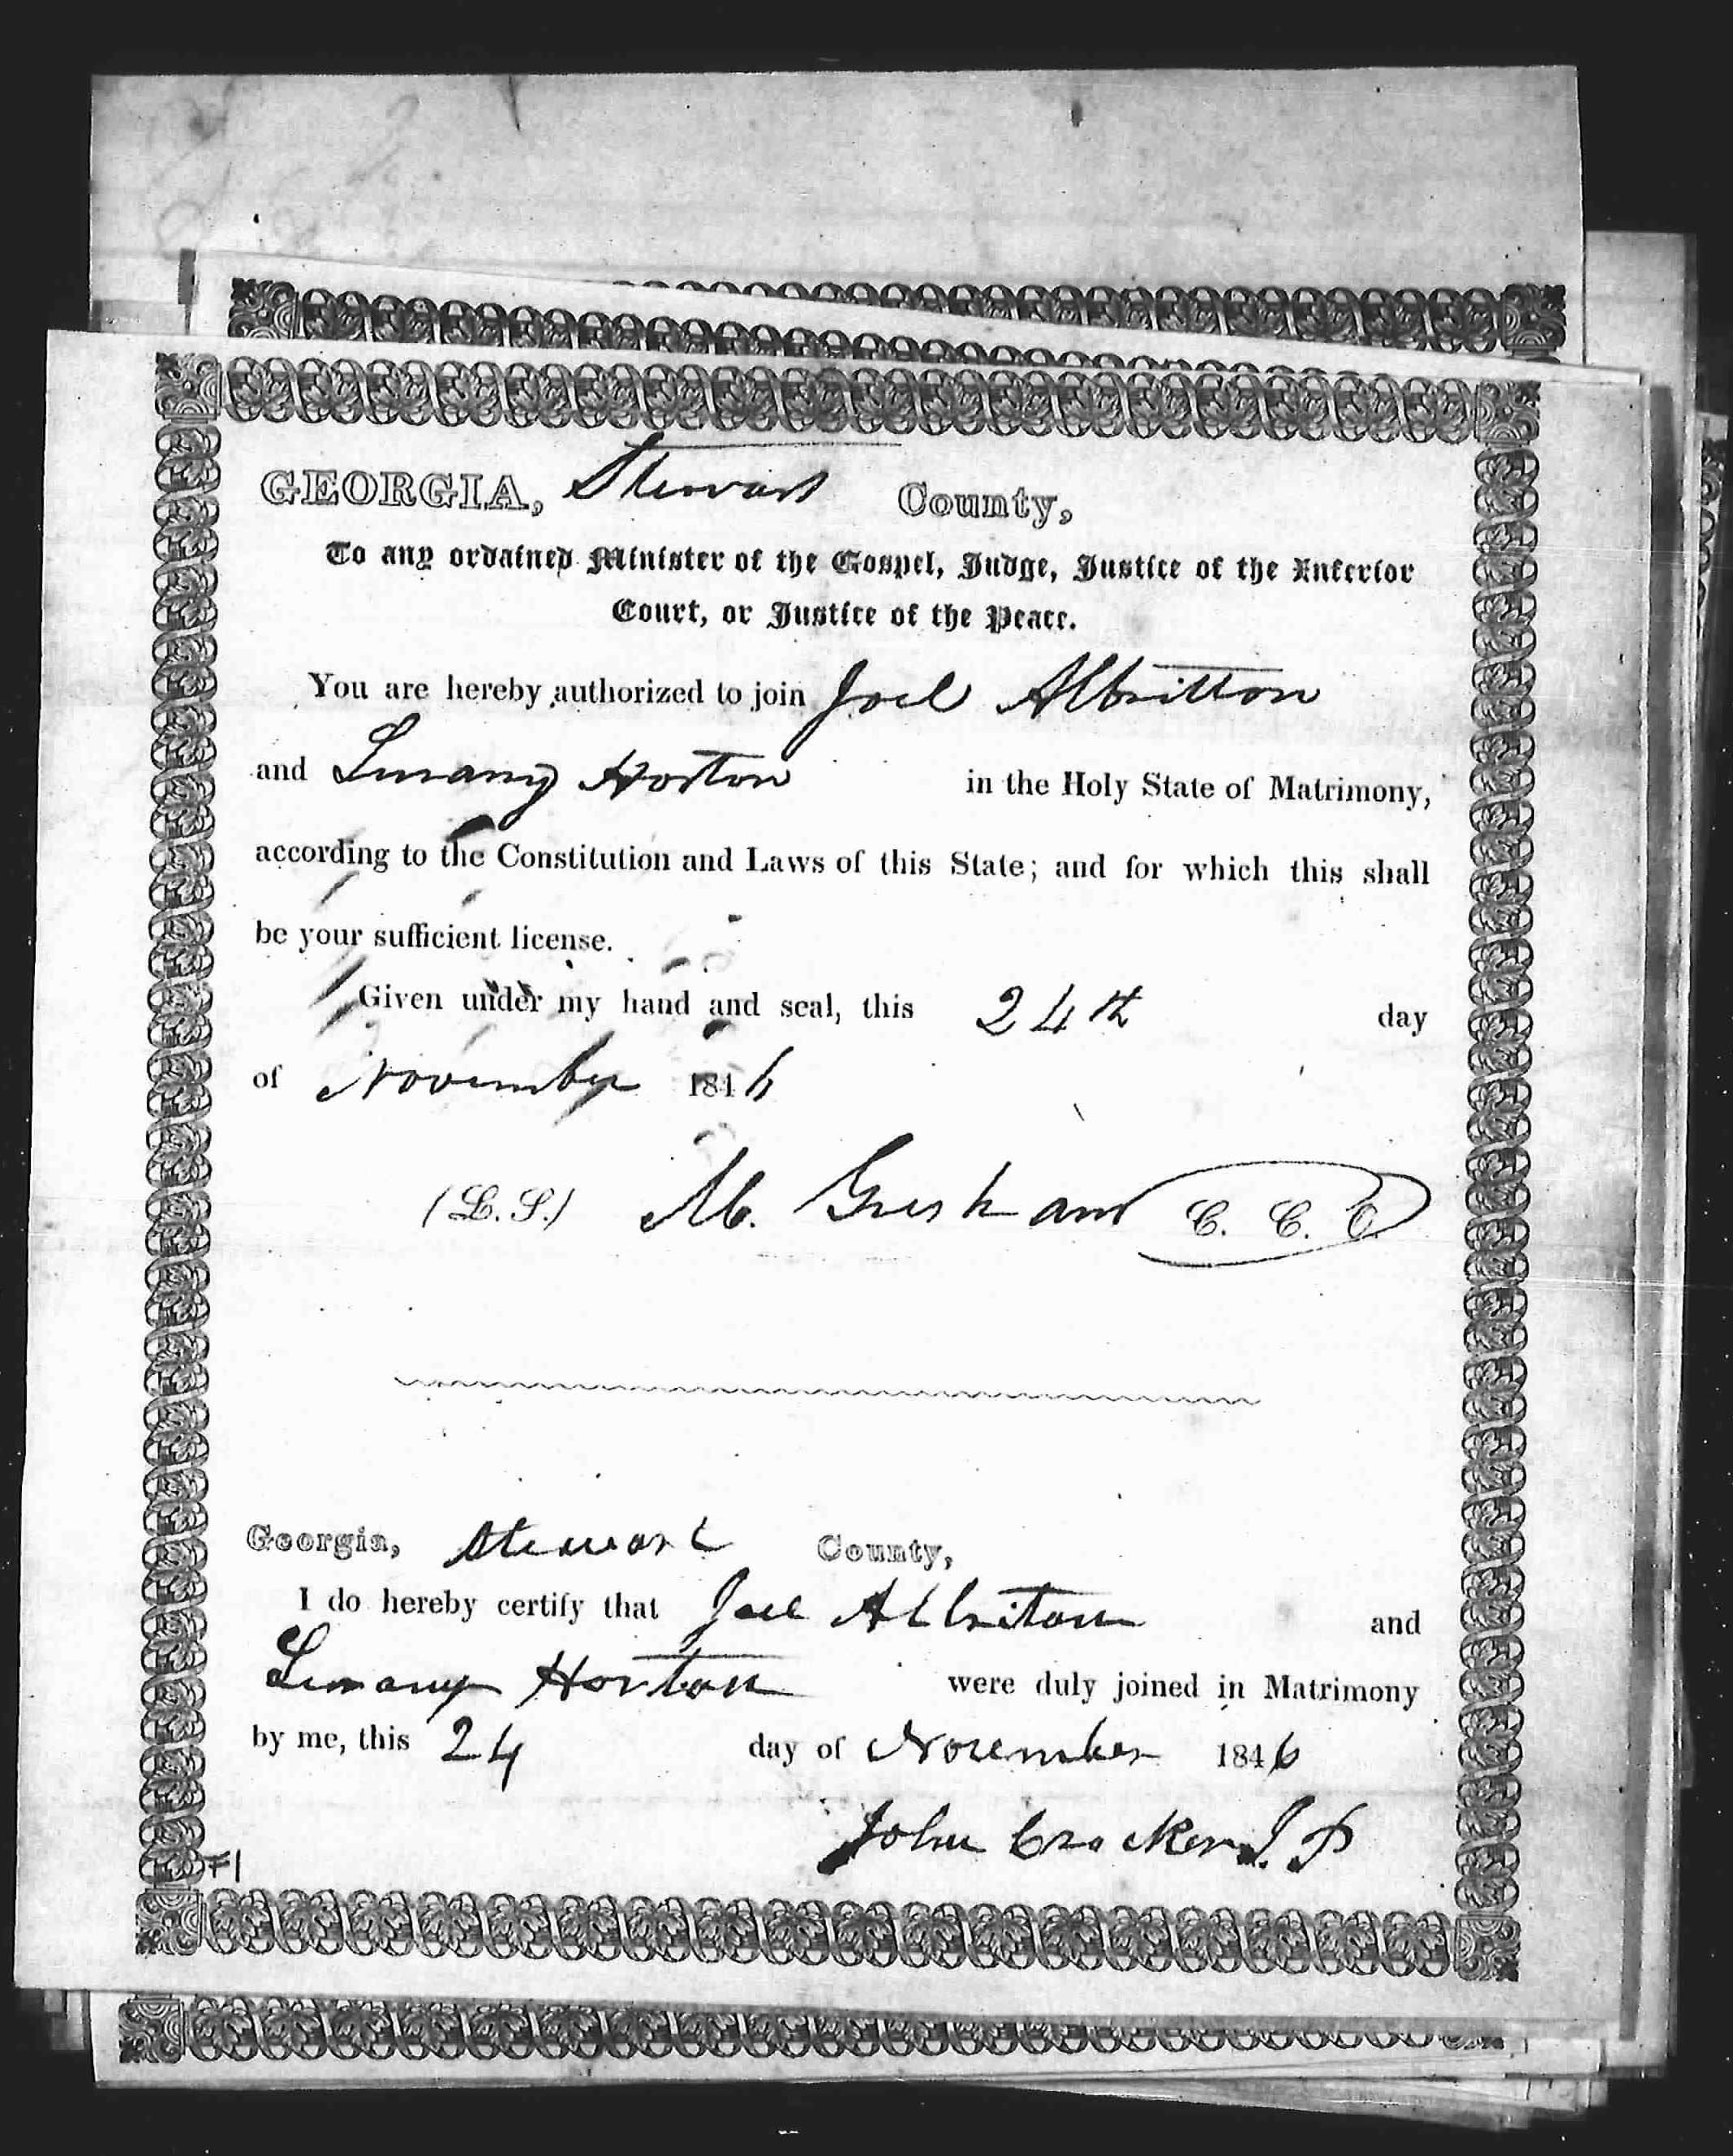 GEORGIA, Stewart County,
To any ordained Minister of the Gospel, Judge, Justice of the Inferior
Court, or Justice of the Peace.
You are hereby authorized to join Joel Albritton
and Linany Horton in the Holy State of Matrimony,
according to the Constitution and Laws of this State; and for which this shall
be your sufficient license.
Given under my hand and seal, this 24th day
of November 1846
(L.S.) M. Gresham C. C. O.
Georgia, Stewart County,
I do hereby certify that Joel Albriton and
Linany Horton were duly joined in Matrimony
by me, this 24 day of November 1846
John Crocker J. P
F1